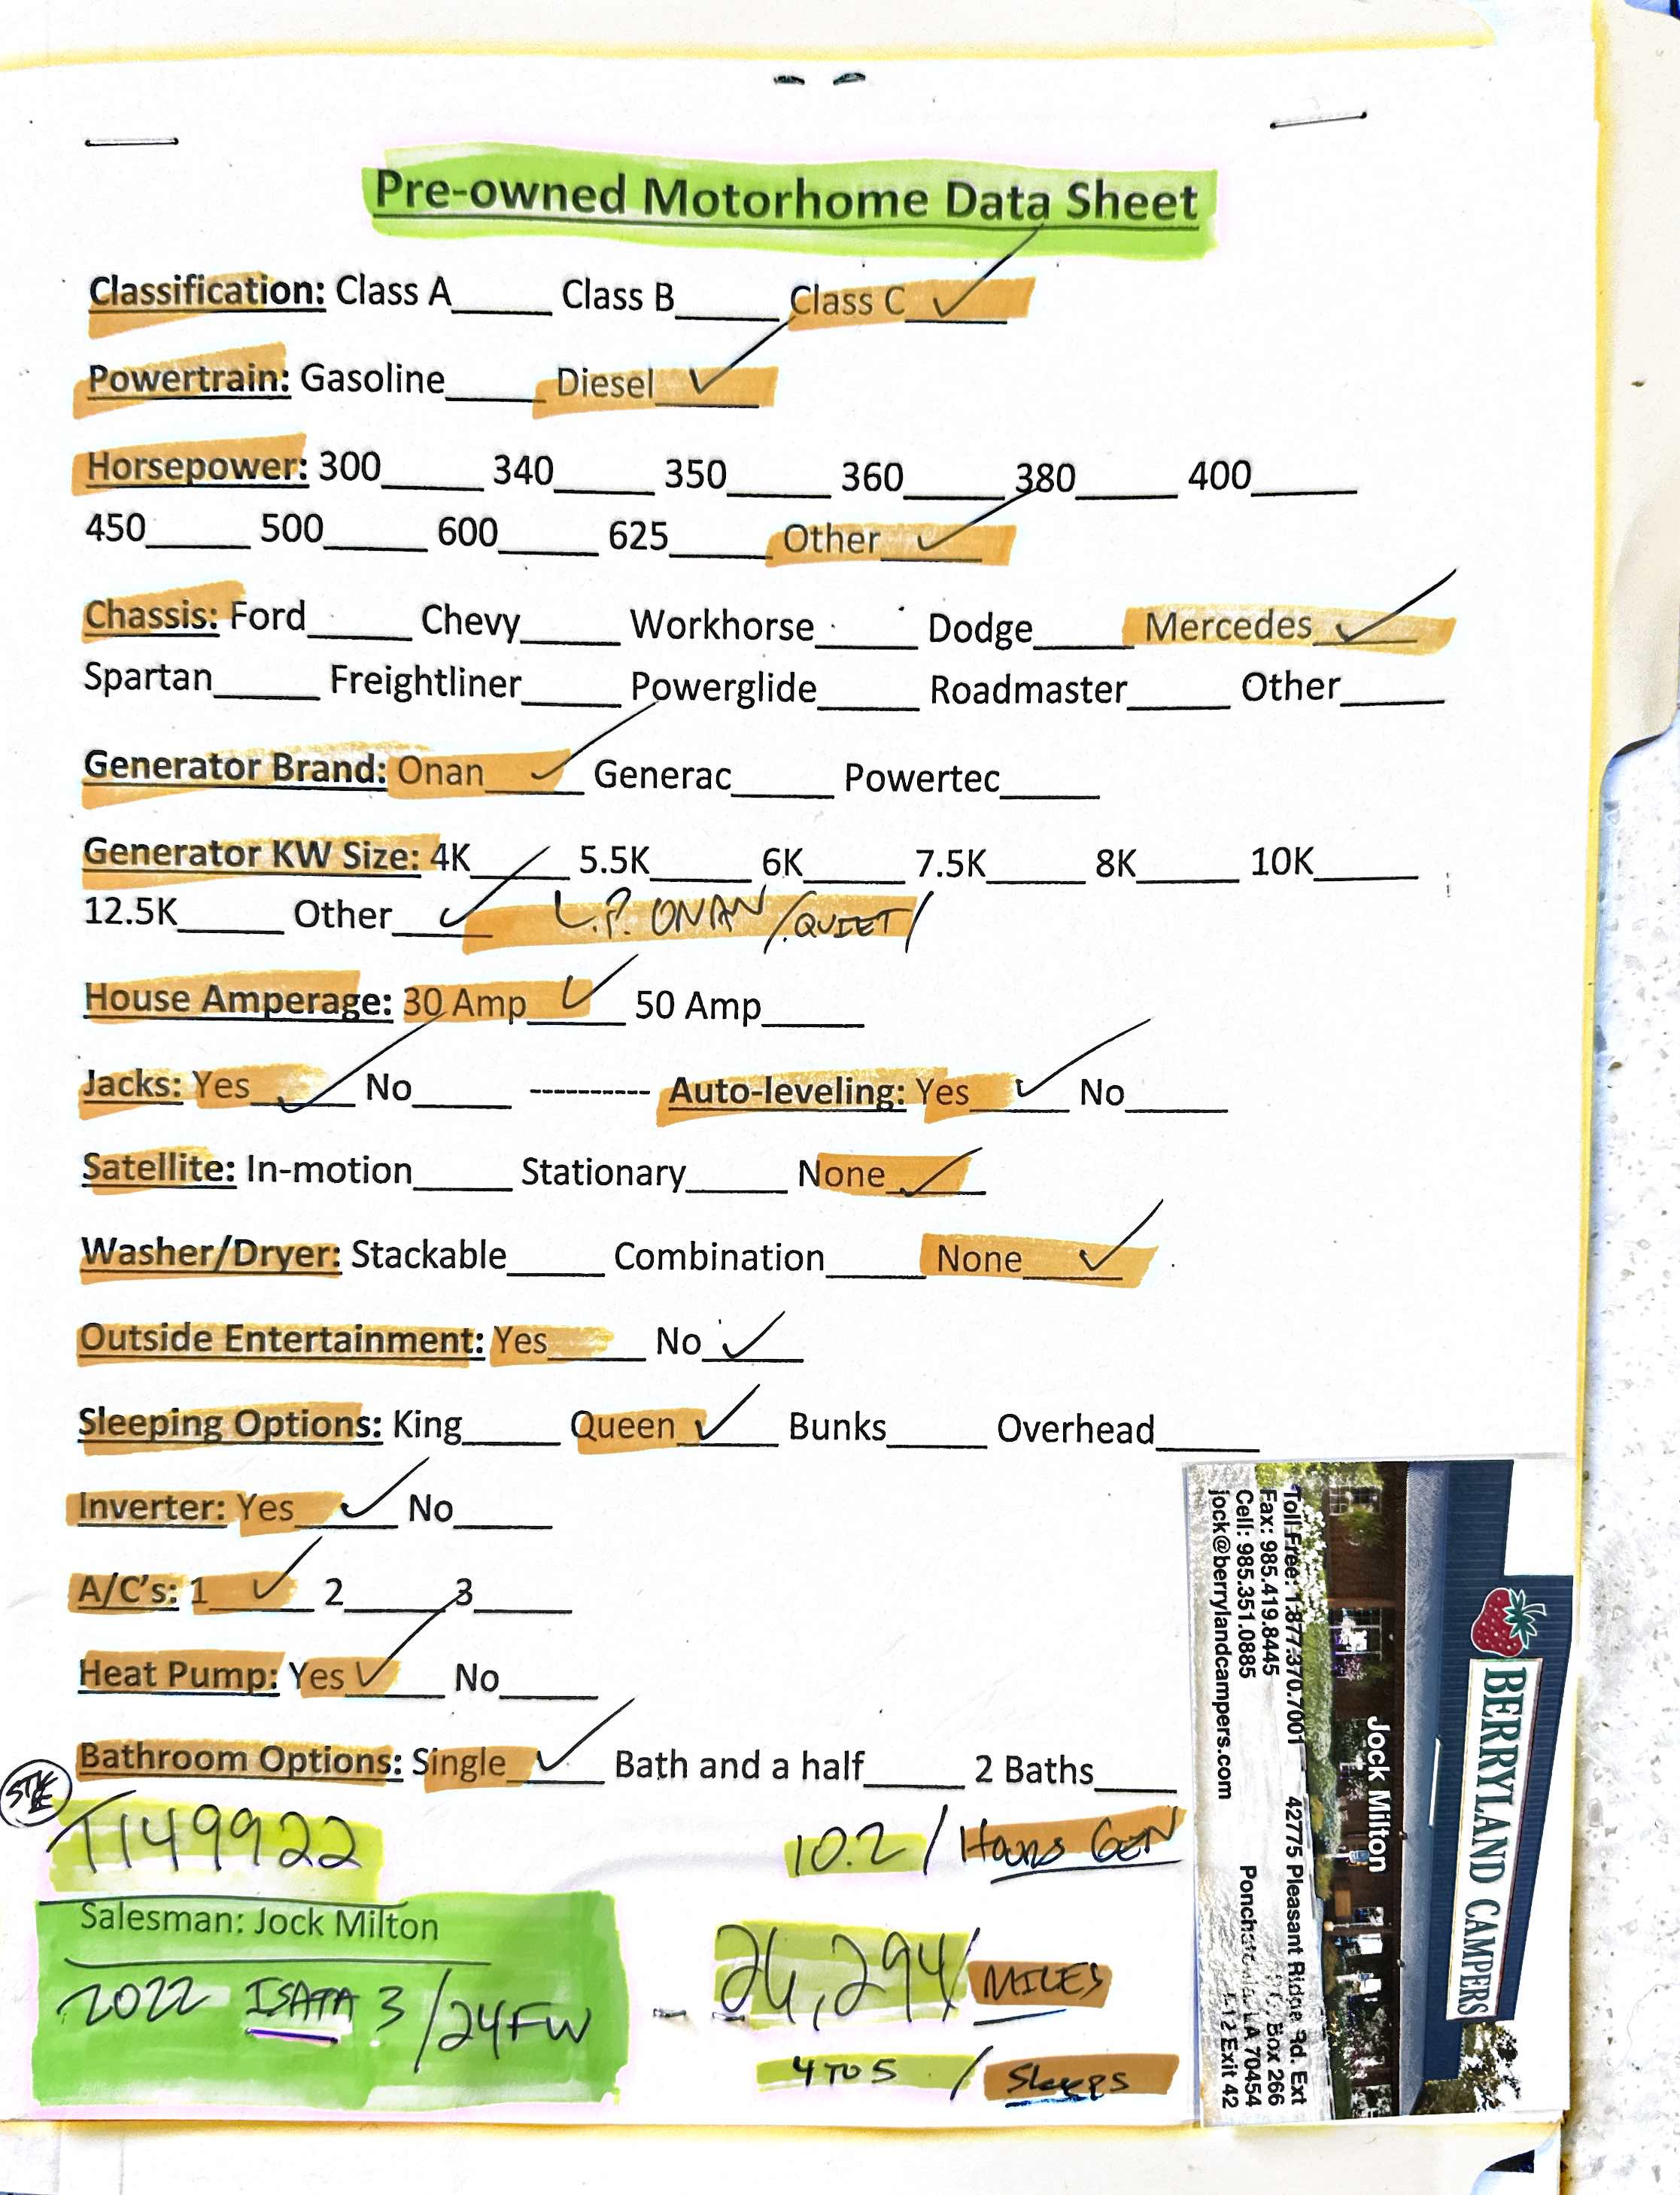 Pre-owned Motorhome Data Sheet
Classification: Class A_____ Class B_____ Class C__✓__
Powertrain: Gasoline_____ Diesel__✓__
Horsepower: 300_____ 340_____ 350_____ 360_____ 380_____ 400_____
450_____ 500_____ 600_____ 625_____ Other__✓__
Chassis: Ford_____ Chevy_____ Workhorse_____ Dodge_____ Mercedes__✓__
Spartan_____ Freightliner_____ Powerglide_____ Roadmaster_____ Other_____
Generator Brand: Onan__✓__ Generac_____ Powertec_____
Generator KW Size: 4K_____ 5.5K_____ 6K_____ 7.5K_____ 8K_____ 10K_____
12.5K_____ Other__✓__ L.P. ONAN /QUIET/
House Amperage: 30 Amp__✓__ 50 Amp_____
Jacks: Yes__✓__ No_____ ---------- Auto-leveling: Yes__✓__ No_____
Satellite: In-motion_____ Stationary_____ None__✓__
Washer/Dryer: Stackable_____ Combination_____ None__✓__
Outside Entertainment: Yes_____ No__✓__
Sleeping Options: King_____ Queen__✓__ Bunks_____ Overhead_____
Inverter: Yes__✓__ No_____
A/C's: 1__✓__ 2_____ 3_____
Heat Pump: Yes__✓__ No_____
Bathroom Options: Single__✓__ Bath and a half_____ 2 Baths_____
T149922
10.2 / Hours GEN
Salesman: Jock Milton
2022 ISATA 3 /24FW - 26,294/ MILES
4 TO 5 / Sleeps
BERRYLAND CAMPERS
Jock Milton
Toll Free: 1.877.370.7001 42775 Pleasant Ridge Rd. Ext
Fax: 985.419.8445 Box 266
Cell: 985.351.0885 LA 70454
jock@berrylandcampers.com I-12 Exit 42